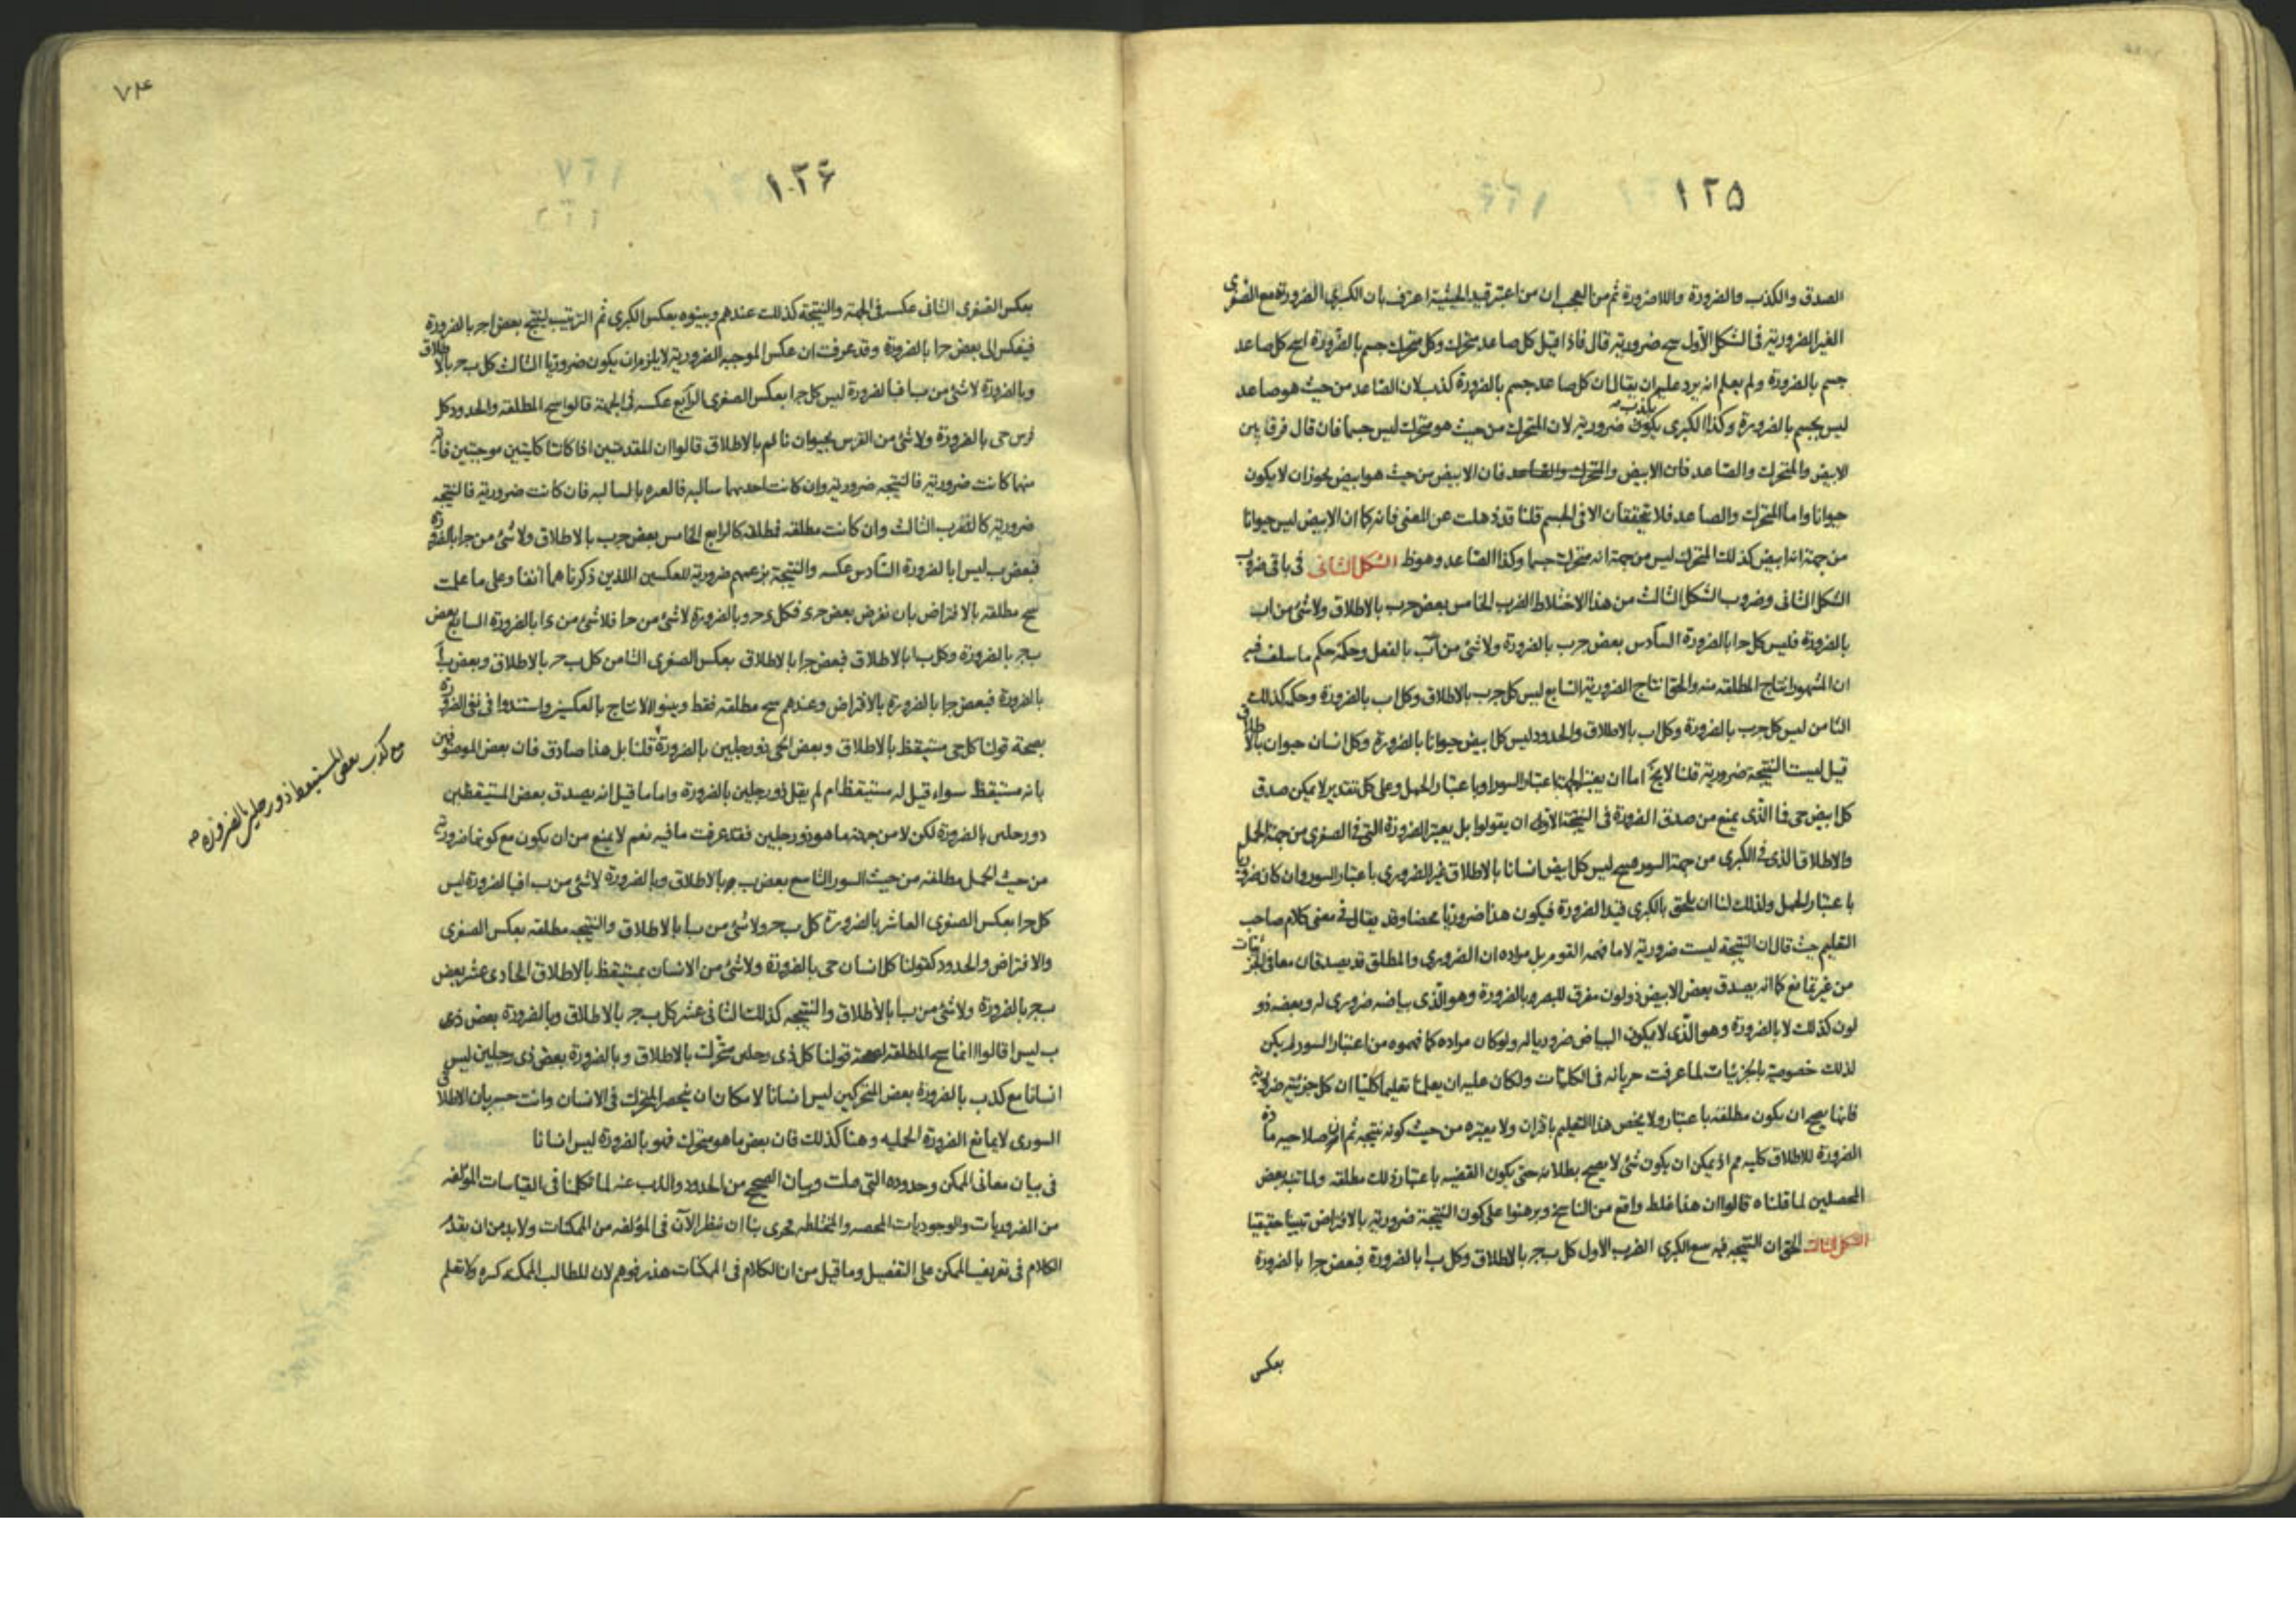 ١٢٥
الصدق والكذب والضرورة واللاضرورة ثم من العجب ان من اعتبر قيد الحيثية اعترف بان الكبرى الضرورة مع الصغرى
الغير الضرورية فى الشكل الأول سح ضرورية قال فاذا قيل كل صاعد متحرك وكل متحرك جسم بالضرورة اسح كل صاعد
جسم بالضرورة ولم يعلم انه يرد عليه ان يقال ان كل صاعد جسم بالضرورة كذب لان الصاعد من حيث هو صاعد
ليس بجسم بالضرورة وكذا الكبرى يكون ضرورية لان المتحرك من حيث هو متحرك ليس جسما فان قال فرقا بين
الابيض والمتحرك والصاعد فان الابيض والمتحرك والصاعد فان الابيض من حيث هو ابيض يجوز ان لا يكون
حيوانا واما المتحرك والصاعد فلا تحققان الا فى الجسم قلنا قد ذهلت عن المعنى فانه كما ان الابيض ليس حيوانا
من جهة انه ابيض كذلك المتحرك ليس من جهة انه متحرك جسما وكذا الصاعد وهو ظ الشكل الثانى فى باقى ضروب
الشكل الثانى وضروب الشكل الثالث من هذا الاختلاط الضرب الخامس بعض جرب بالاطلاق ولا شئ من اب
بالضرورة فليس كل حا بالضرورة السادس بعض جرب بالضرورة ولا شئ من اب بالفعل وحكمه حكم ما سلف فيه
ان المشهود انتاج المطلقه منه والحق انتاج الضرورية السابع ليس كل جرب بالاطلاق وكل اب بالضرورة وحكمه كذلك
الثامن ليس كل جرب بالضرورة وكل اب بالاطلاق والحدود ليس كل ابيض حيوانا بالضرورة وكل انسان حيوان بالاطلاق
قيل ليست النتيجة ضرورية قلنا لا يخ اما ان يعتبر الجهة باعتبار السور او باعتبار الحمل وعلى كل تقدير لا يمكن صدق
كل ابيض حى فا الذى يمنع من صدق الضرورة فى النتيجة الاولى ان يقولوا بل يعتبر الضرورة التى فى الصغرى من جهة الحمل
والاطلاق الذى فى الكبرى من جهة السور فيصح ليس كل ابيض انسانا بالاطلاق غير الضرورى باعتبار السور وان كان ضروريا
باعتبار الحمل ولذلك لنا ان يلحق بالكبرى قيد الضرورة فيكون هذا ضروريا محضا وقد يقال فى معنى كلام صاحب
التعليم حيث قال ان النتيجة ليست ضرورية لا ما فهمه القوم بل مراده ان الضرورى والمطلق قد يصدقان معا فى الجزئيات
من غير تمانع كما انه يصدق بعض الابيض ذو لون مفرق للبصر وبالضرورة وهو الذى بياضه ضرورى له وبعضه ذو
لون كذلك لا بالضرورة وهو الذى لا يكون البياض ضروريا له ولو كان مراده كما فهموه من اعتبار السور لم يكن
لذلك خصوصية بالجزئيات لما عرفت جريانه فى الكليات ولكان عليه ان يعلمنا تعليما كليا ان كل جزئية ضرورية
فانها يصح ان يكون مطلقة باعتبار ولا يخص هذا التعليم باقران ولا يعتبره من حيث كونه نتيجة ثم صلاحيه مادة
الضرورة للاطلاق كليه مم اذ يمكن ان يكون شئ لا يصح بطلانه حتى يكون القضيه باعتبار ذلك مطلقه ولما تنبه بعض
المحصلين لما قلناه قالوا ان هذا غلط واقع من الناسخ وبرهنوا على كون النتيجة ضرورية بالافتراض تبيينا حقيقيا
الشكل الثالث الحق ان النتيجه فيه سع الكبرى الضرب الاول كل بـ جـ بالاطلاق وكل با بالضرورة فبعض جـ ا بالضرورة
بعكس
٧٤
١٢۶
بعكس الصغرى الثانى عكسه فى الجهة والنتيجة كذلك عندهم وبينوه بعكس الكبرى ثم الترتيب لينتج بعض اجـ بالضرورة
فينعكس الى بعض جـ ا بالضرورة وقد عرفت ان عكس الموجبه الضرورية لا يلزم ان يكون ضروريا الثالث كل بـ جـ بالاطلاق
وبالضرورة لا شئ من بـ ا فبالضرورة ليس كل جـ ا بعكس الصغرى الرابع عكسه فى الجهة قالوا سح المطلقه والحدود كل
فرس حى بالضرورة ولا شئ من الفرس بحيوان نائم بالاطلاق قالوا ان المقدمتين اذا كانتا كليتين موجبتين فاية
منها كانت ضرورية فالنتيجه ضرورية وان كانت احديهما سالبه فالعبره بالسالبه فان كانت ضرورية فالنتيجه
ضرورية كالضرب الثالث وان كانت مطلقه فمطلقه كالرابع الخامس بعض جرب بالاطلاق ولا شئ من جـ ا بالضرورة
فبعض ب ليس ا بالضرورة السادس عكسه والنتيجة بزعمهم ضرورية للعكسين اللذين ذكرناهما انفا وعلى ما علمت
سح مطلقه بالافتراض بان نفرض بعض جـ ى فكل ى جـ وبالضرورة لا شئ من جـ ا فلا شئ من ى ا بالضرورة السابع بعض
بـ جـ بالضرورة وكل بـ ا بالاطلاق فبعض جـ ا بالاطلاق بعكس الصغرى الثامن كل بـ جـ بالاطلاق وبعض بـ ا
بالضرورة فبعض جـ ا بالضرورة بالافتراض وعندهم سح مطلقه فقط وبينوا الانتاج بالعكسين واستندوا فى نفى الضرورة
بصحة قولنا كل حى مستيقظ بالاطلاق وبعض الحى ذو رجلين بالضرورة قلنا بل هذا صادق فان بعض الموصوفين
بانه مستيقظ سواء قيل له مستيقظ ام لم يقل ذو رجلين بالضرورة واما ما قيل انه يصدق بعض المستيقظين
ذو رجلين بالضرورة لكن لا من جهة ما هو ذو رجلين فقد عرفت ما فيه نعم لا يمنع من ان يكون مع كونها ضرورية
من حيث الحمل مطلقه من حيث السور التاسع بعض بـ جـ بالاطلاق وبالضرورة لا شئ من بـ ا فبالضرورة ليس
كل جـ ا بعكس الصغرى العاشر بالضرورة كل بـ جـ ولا شئ من بـ ا بالاطلاق والنتيجه مطلقه بعكس الصغرى
والافتراض والحدود كقولنا كل انسان حى بالضرورة ولا شئ من الانسان بمستيقظ بالاطلاق الحادى عشر بعض
بـ جـ بالضرورة ولا شئ من بـ ا بالاطلاق والنتيجه كذلك الثانى عشر كل بـ جـ بالاطلاق وبالضرورة بعض
ب ليس ا قالوا انما سح المطلقه لصحة قولنا كل ذى رجلين متحرك بالاطلاق وبالضرورة بعض ذى رجلين ليس
انسانا مع كذب بالضرورة بعض المتحركين ليس انسانا لامكان ان ينحصر المتحرك فى الانسان وانت خبير بان الاطلاق
السورى لا يمانع الضرورة الحمليه وهنا كذلك فان بعض ما هو متحرك فهو بالضرورة ليس انسانا
فى بيان معانى الممكن وحدوده التى وبيان الصحيح من الحدود والذب عنه لما تكلمنا فى القياسات المؤلفه
من الضروريات والوجوديات المحصه والمختلطه فحرى بنا ان ننظر الآن فى المؤلفه من الممكنات ولا بد من ان نقدم
الكلام فى تعريف الممكن على التفصيل وما قيل من ان الكلام فى الممكنات هذر فوهم لان للطالب الممكنه كثره ولا تعلم
مع كذب بعض المستيقظ ذو رجلين بالضرورة صح